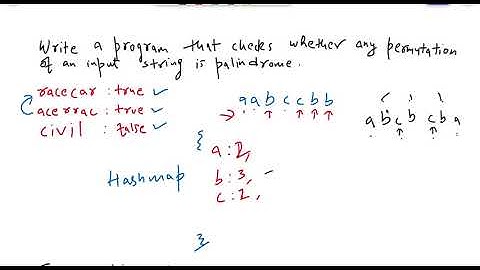 Write a program that checks whether any permutation
of an input string is palindrome.
racecar : true ✓
acerrac : true ✓
civil : false ✓
a a b c c b b
a b c b c b a
{
a : 2,
Hashmap
b : 3,
c : 2,
}